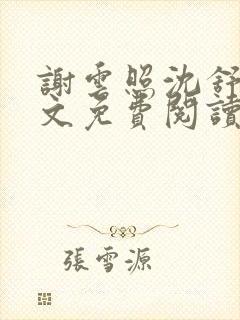 謝雲照沈舒
文免費閱讀
張雪源